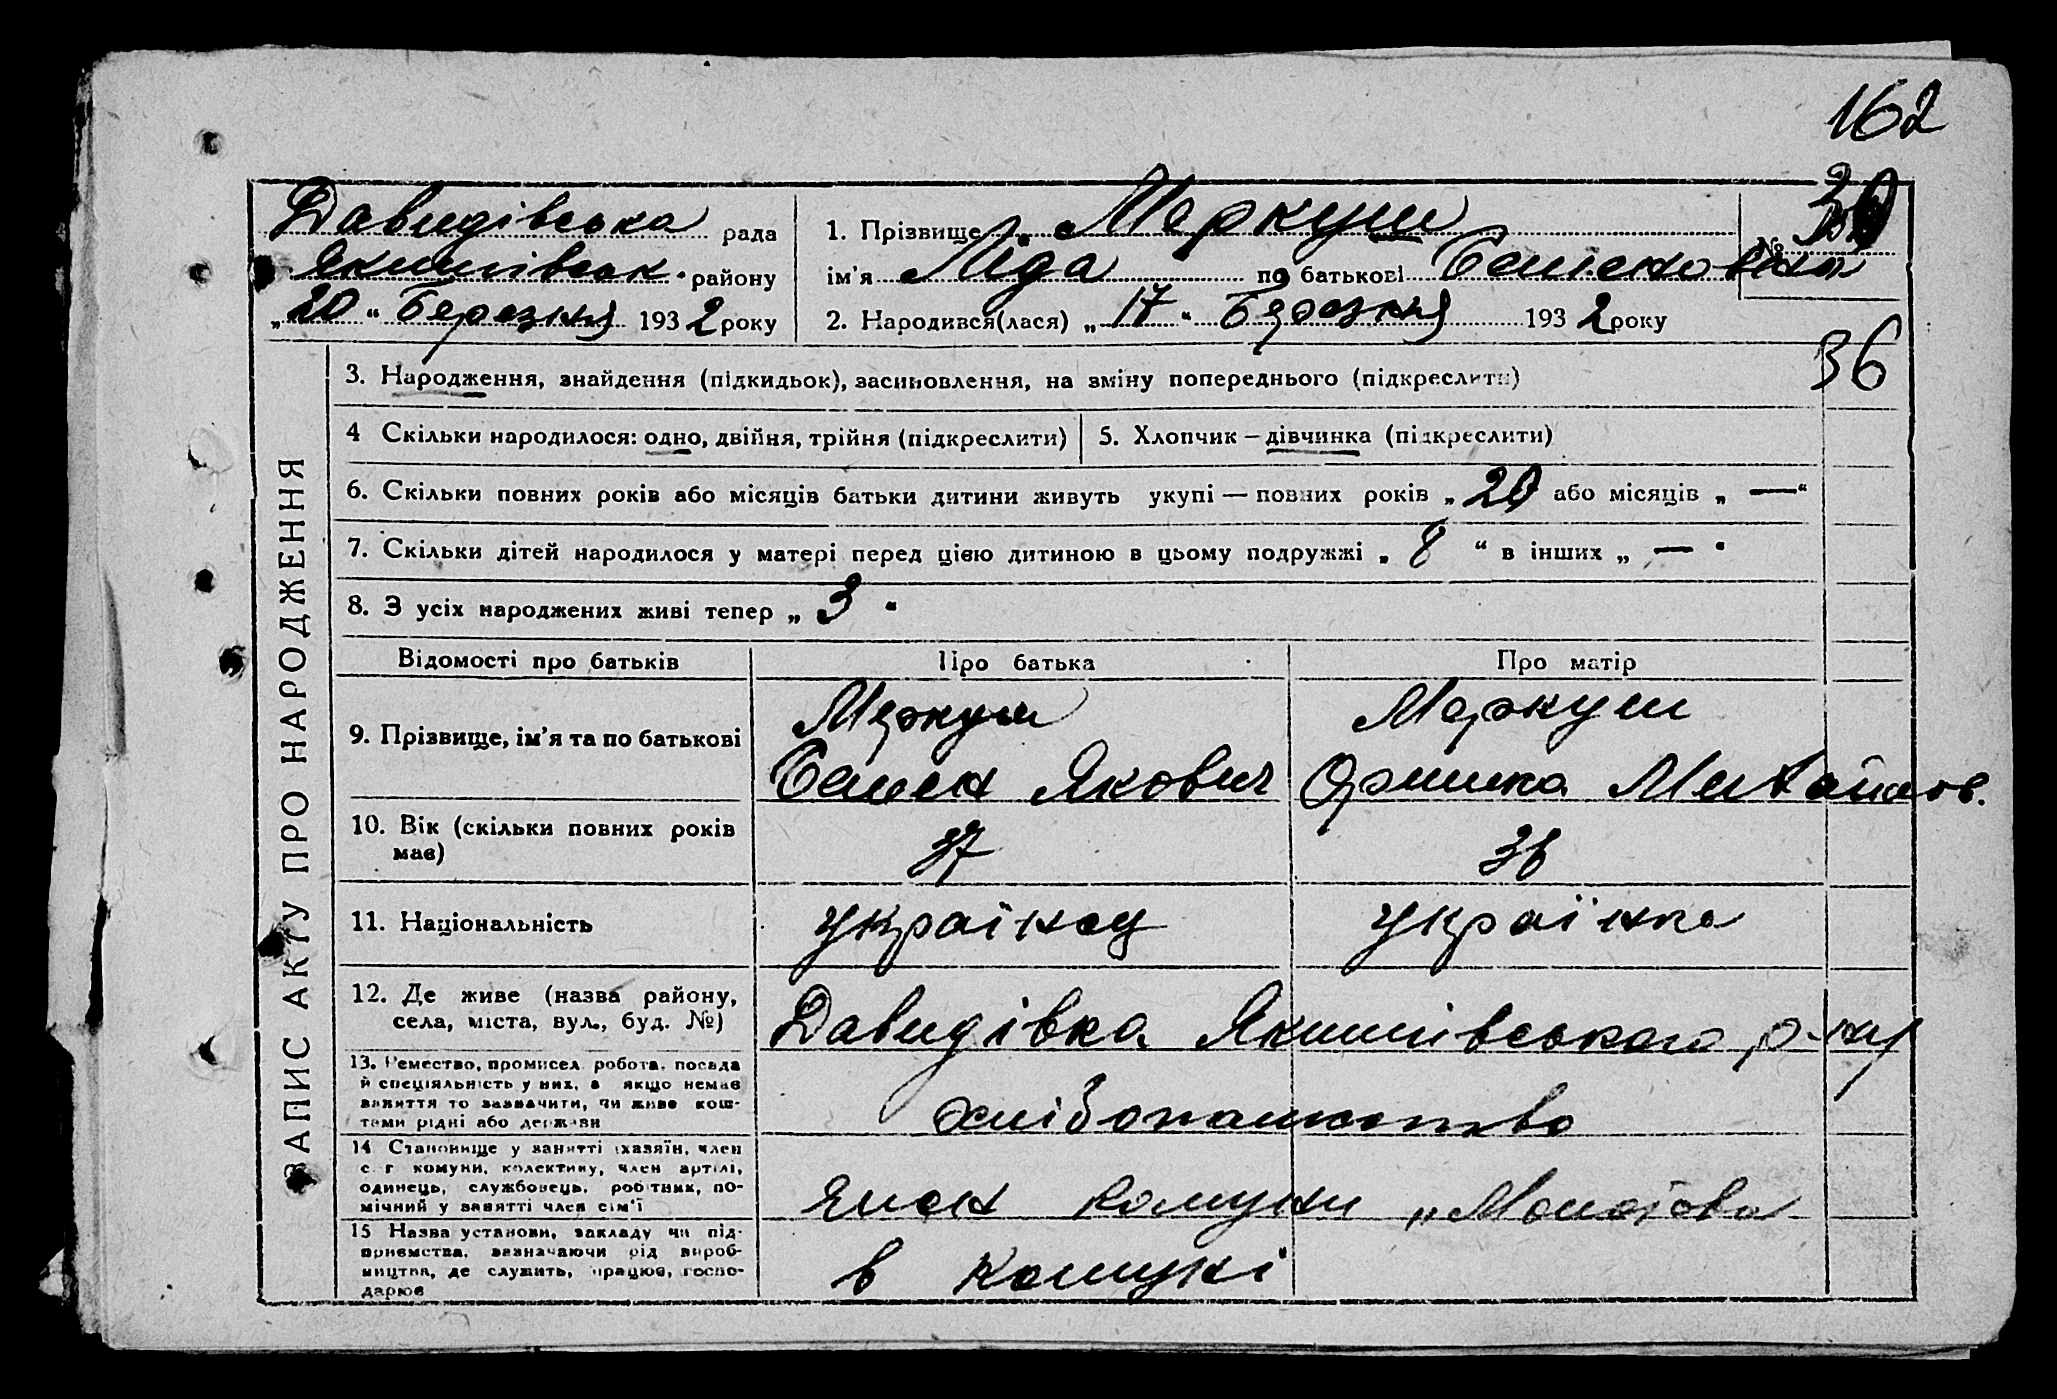 162
Давидівська рада
Якимівськ. району
„20“ Березня 1932 року
1. Прізвище Меркуш
ім'я Ліда по батькові Семеновна
№ 30
2. Народився(лася) „17“ Березня 1932 року
36
ЗАПИС АКТУ ПРО НАРОДЖЕННЯ
3. Народження, знайдення (підкидьок), засиновлення, на зміну попереднього (підкреслити)
4 Скільки народилося: одно, двійня, трійня (підкреслити)
5. Хлопчик – дівчинка (підкреслити)
6. Скільки повних років або місяців батьки дитини живуть укупі — повних років „20 або місяців „ — “
7. Скільки дітей народилося у матері перед цією дитиною в цьому подружжі „ 8 “ в інших „ — “
8. З усіх народжених живі тепер „ 3 “
Відомості про батьків Про батька Про матір
9. Прізвище, ім'я та по батькові
Меркуш
Семен Якович
Меркуш
Оришка Михайлов.
10. Вік (скільки повних років
має)
37
36
11. Національність українец українка
12. Де живе (назва району,
села, міста, вул., буд. №)
Давидівка Якимівського р-ну
13. Ремество, промисел, робота, посада
й спеціяльність у них, а якщо немає
заняття то зазначити, чи живе кош-
тами рідні або держави
хлібопашество
14 Становище у занятті (хазяїн, член
с. г комуни, колективу, член артілі,
одинець, службовець, робітник, по-
мічний у занятті член сім'ї
Член комуни „Молотова
15 Назва установи, закладу чи під-
приємства, зазначаючи рід вироб-
ництва, де служить, працює, госпо-
дарює
в комуні